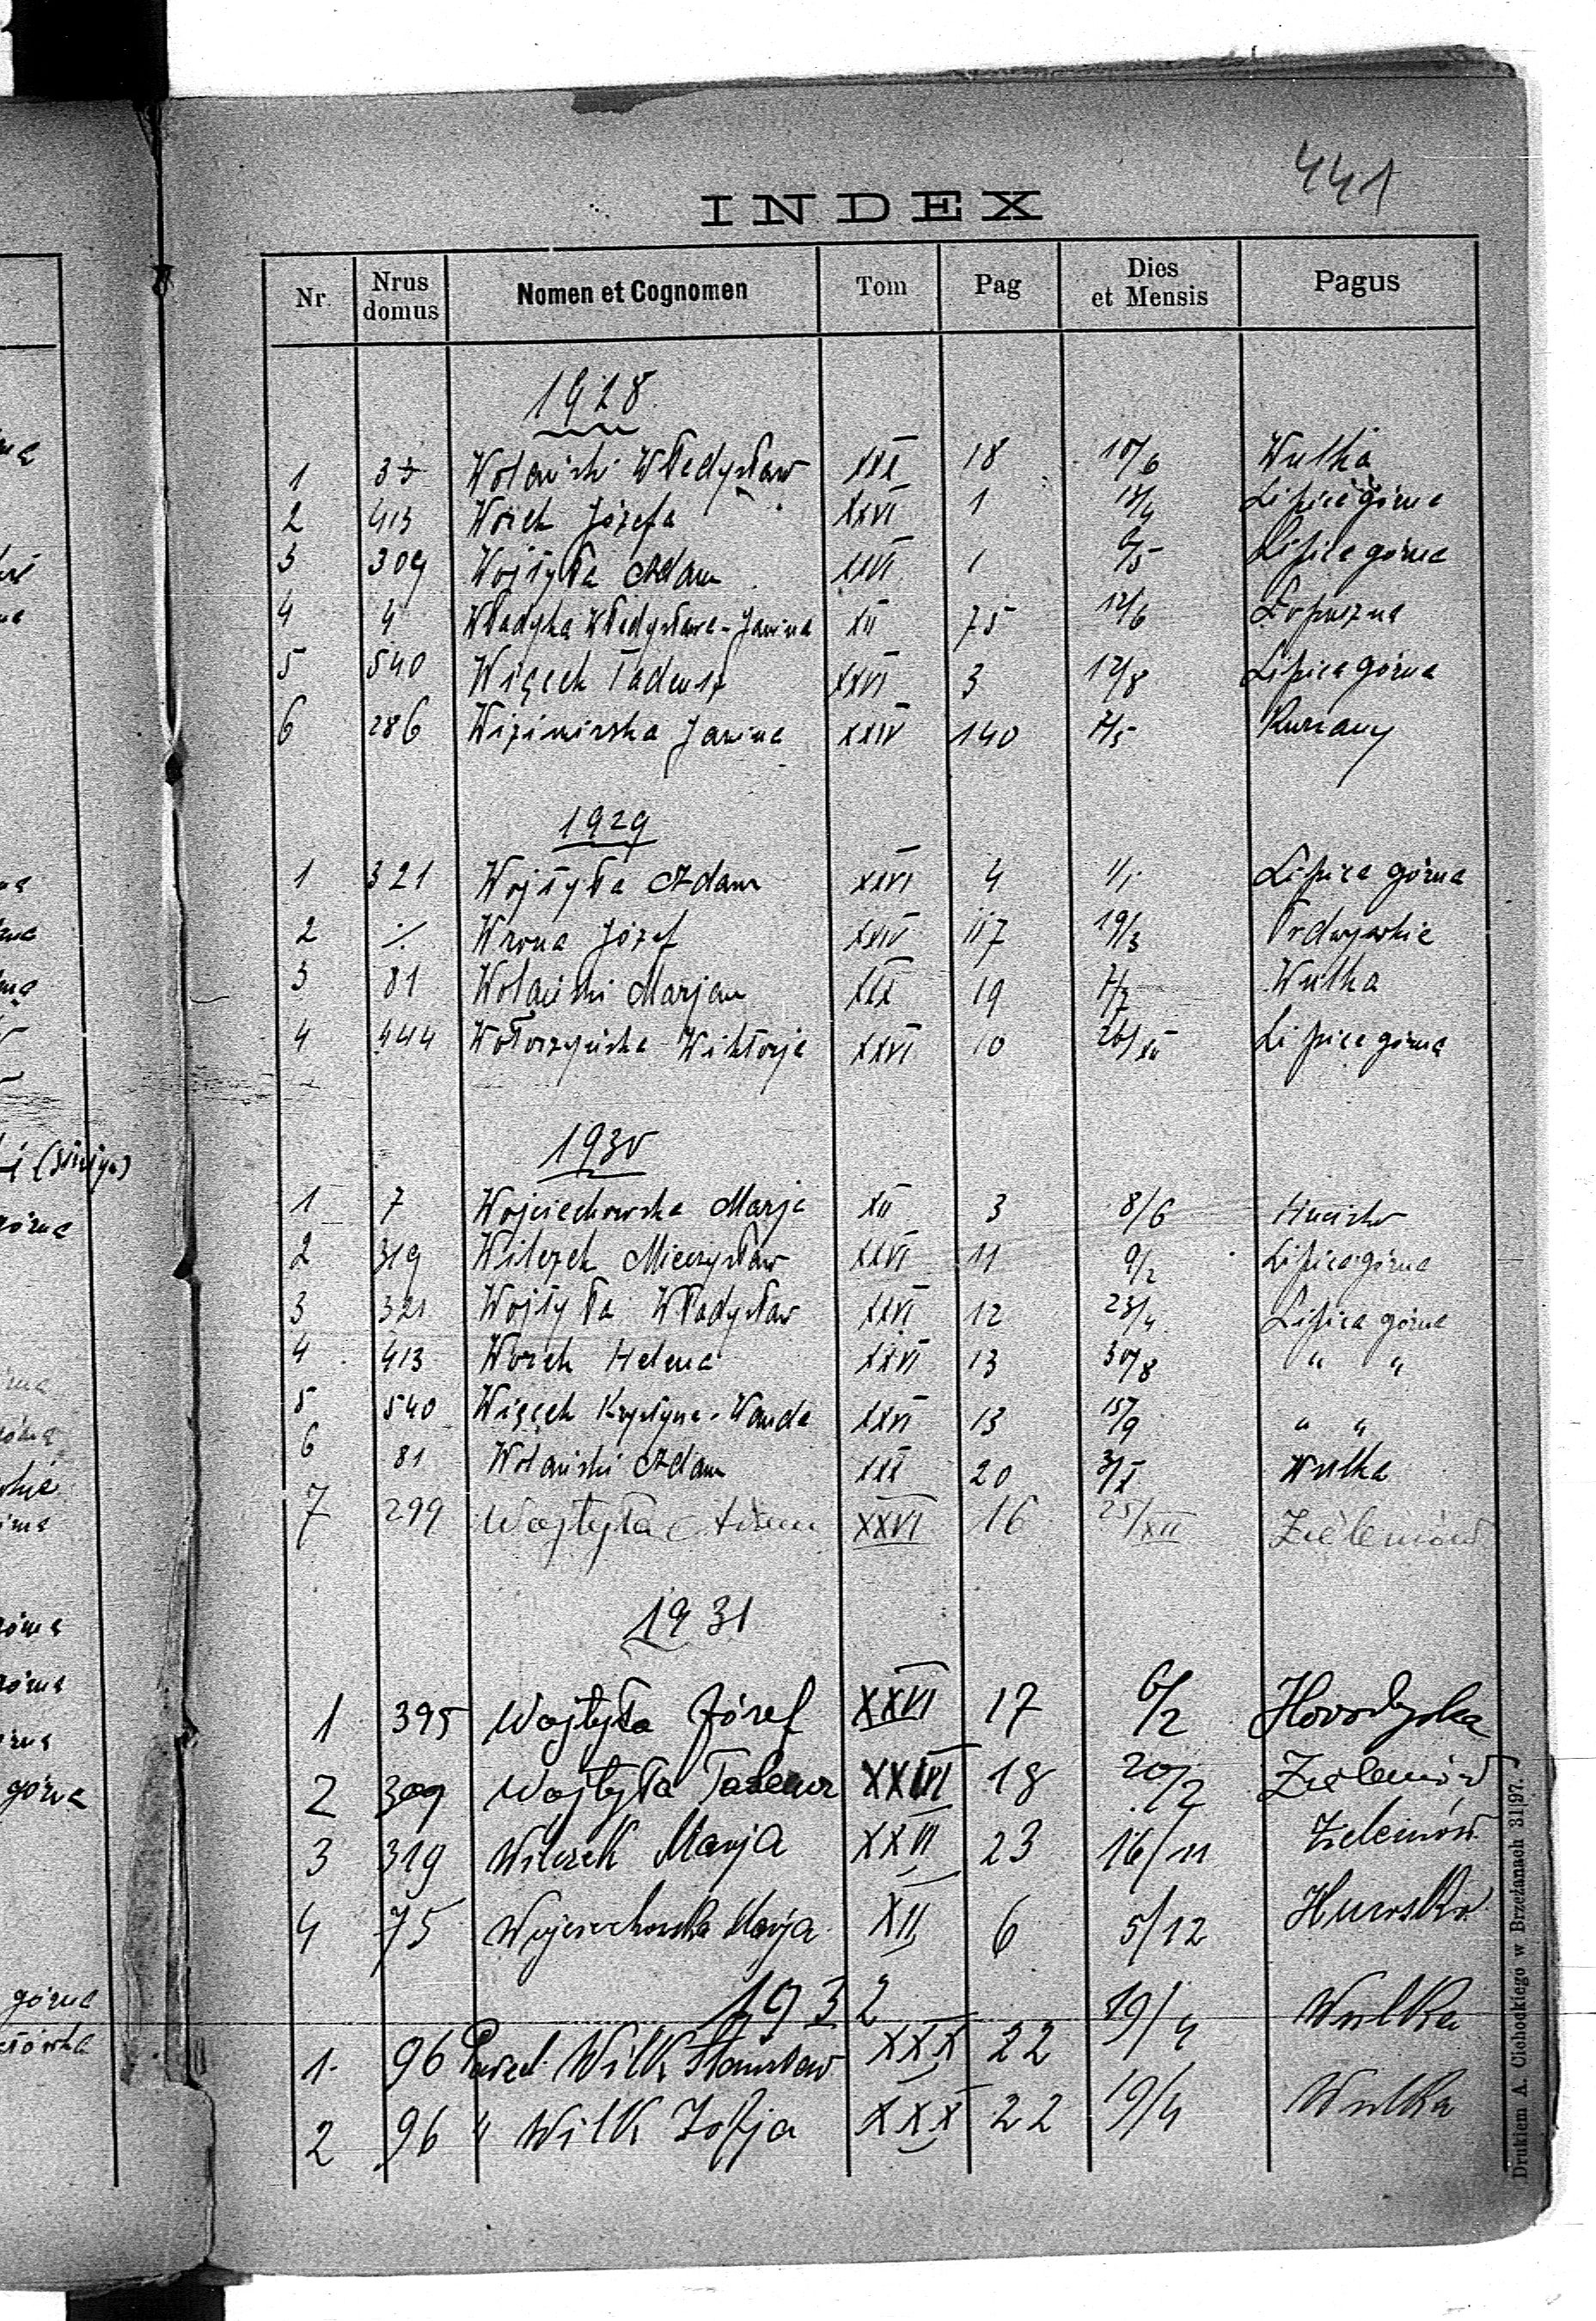 441
INDEX
Nr Nrus domus Nomen et Cognomen Tom Pag Dies et Mensis Pagus
1928
1 33 Wolański Władysław XXX 18 10/6 Wulka
2 413 Worek Józefa XXVI 1 Lipica górna
3 309 Wojtyła Adam XXVI 1 6/5 Lipica górna
4 4 Władyka Władysława-Janina XII 75 12/6 Łopuszna
5 540 Więcek Tadeusz XXVI 3 12/8 Lipica górna
6 286 Wizimirska Janina XXIV 140 7/5 Kurzany
1929
1 321 Wojtyła Adam XXVI 4 1/1 Lipica górna
2 ./. Wrona Józef XXIV 117 19/3 Podwysokie
3 81 Wolański Marjan XXX 19 7/7 Wulka
4 444 Wołoszyńska Wiktorja XXVI 10 26/XII Lipica górna
1930
1 7 Wojciechowska Marja XII 3 8/6 Hucisko
2 319 Wilczek Mieczysław XXVI 11 9/2 Lipica górna
3 321 Wojtyła Władysław XXVI 12 23/4 Lipica górna
4 413 Worek Helena XXVI 13 30/8 " "
5 540 Więcek Krystyna-Wanda XXVI 13 15/9 " "
6 81 Wolański Adam XXX 20 3/X Wulka
7 299 Wojtyła Adam XXVI 16 25/XII Zieleniów
1931
1 395 Wojtyła Józef XXVI 17 6/2 Horodyska
2 309 Wojtyła Tadeusz XXVI 18 20/2 Zieleniów
3 319 Wilczek Marja XXVI 23 16/11 Zieleniów
4 75 Wojciechowska Marja XII 6 5/12 Hucisko
1932
1. 96 Paweł Wilk Stanisław XXX 22 19/4 Wulka
2 96 " Wilk Zofja XXX 22 19/4 Wulka
Drukiem A. Cichockiego w Brzeżanach 31|97.
górna
górna
górna
górna
górna
górna